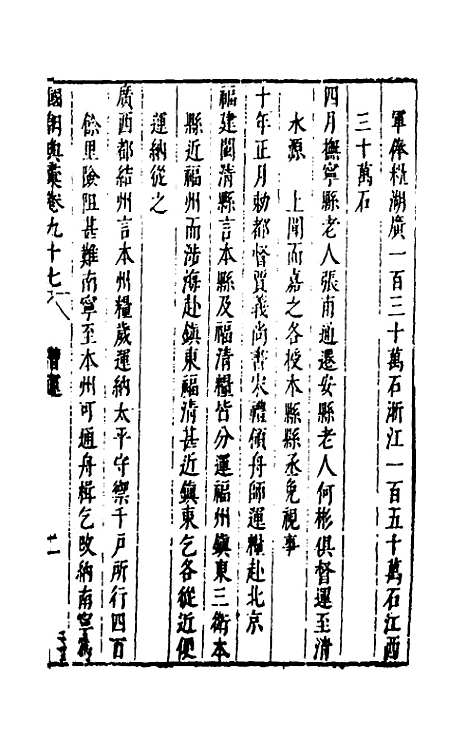 軍俸糧湖廣一百三十萬石浙江一百五十萬石江西
三十萬石
四月撫寧縣老人張甫通遷安縣老人何彬俱督運至清
水源 上聞而嘉之各授本縣縣丞免視事
十年正月勅都督賈義尚書宋禮領舟師運糧赴北京
福建閩清縣言本縣及福清糧皆分運福州鎮東三衛本
縣近福州而涉海赴鎮東福清甚近鎮東乞各從近便
運納從之
廣西都結州言本州糧歲運納太平守禦千戶所行四百
餘里險阻甚難南寧至本州可通舟楫乞改納南寧為
國朝典彙卷九十七 漕運 十一